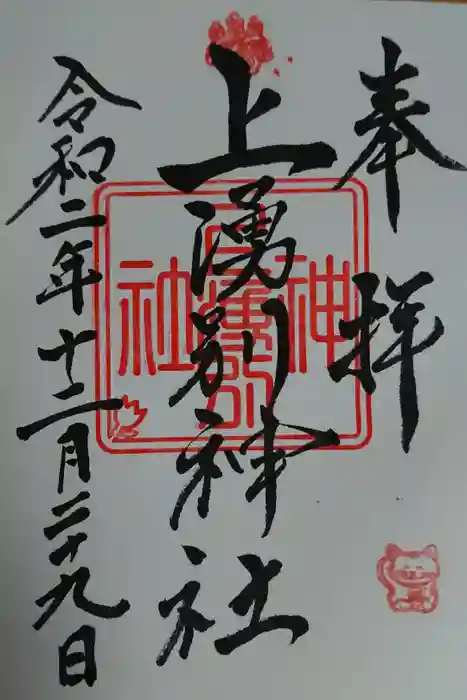 奉拝
上湧別神社
令和二年十二月二十九日